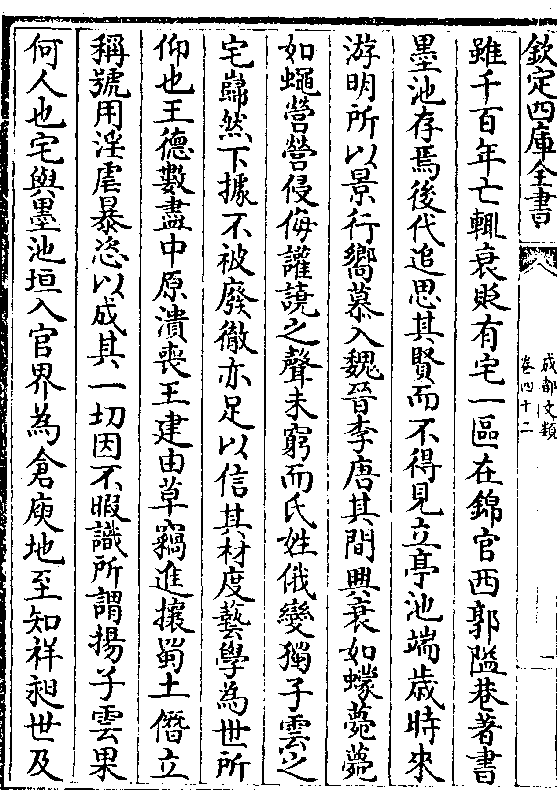 欽定四庫全書
成都文類
卷四十二
雖千百年亡輒衰貶有宅一區在錦官西郭隘巷著書
墨池存焉後代追思其賢而不得見立亭池端歲時來
游明所以景行嚮慕入魏晉李唐其間興衰如蠓薨薨
如蠅營營侵侮讙譊之聲未窮而氏姓俄變獨子雲之
宅巋然下據不被廢徹亦足以信其材度藝學為世所
仰也王德數盡中原潰喪王建由草竊進攘蜀土僭立
稱號用淫虐暴恣以成其一切因不暇識所謂揚子雲果
何人也宅與墨池垣入官界為倉庾地至知祥昶世及